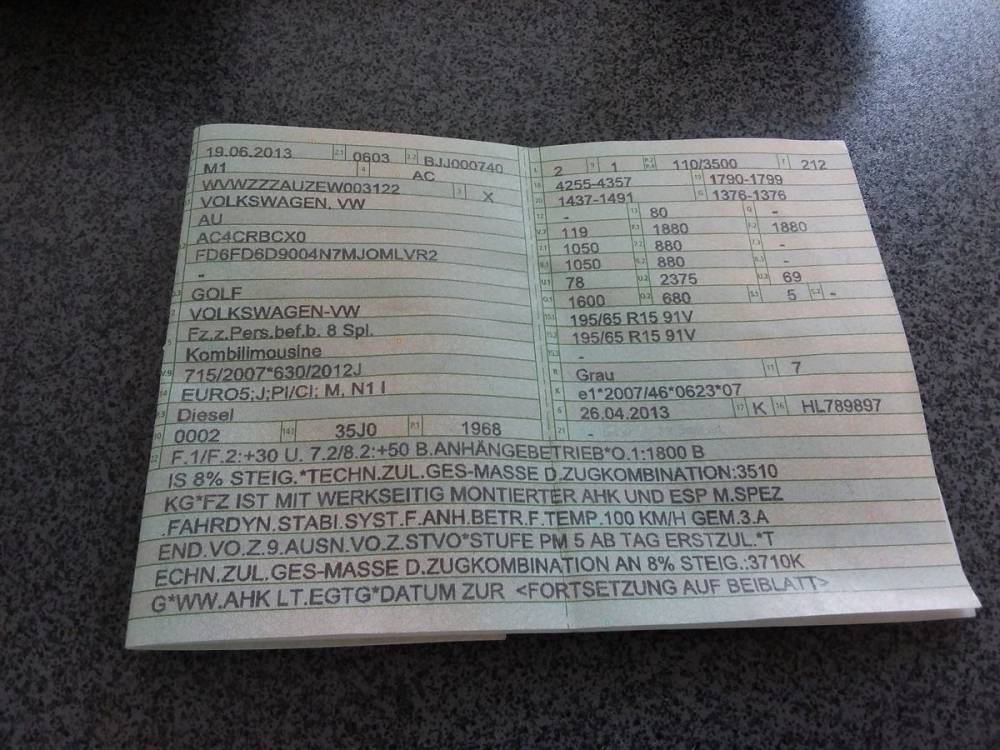 19.06.2013 2.1 0603 2.2 BJJ000740
M1 4 AC
WVWZZZAUZEW003122 3 X
VOLKSWAGEN, VW
AU
AC4CRBCX0
FD6FD6D9004N7MJOMLVR2
-
GOLF
VOLKSWAGEN-VW
Fz.z.Pers.bef.b. 8 Spl.
Kombilimousine
715/2007*630/2012J
EURO5;J;PI/CI; M, N1 I
Diesel
0002 14.1 35J0 P.1 1968
2 9 1 P.2 P.4 110/3500 T 212
18 4255-4357 19 1790-1799
20 1437-1491 G 1376-1376
12 - 13 80 Q -
V.7 119 F.1 1880 F.2 1880
7.1 1050 7.2 880 7.3 -
8.1 1050 8.2 880 8.3 -
U.1 78 U.2 2375 U.3 69
O.1 1600 O.2 680 S.1 5 S.2 -
15.1 195/65 R15 91V
15.2 195/65 R15 91V
15.3 -
R Grau 11 7
K e1*2007/46*0623*07
6 26.04.2013 17 K 16 HL789897
21 -
22 F.1/F.2:+30 U. 7.2/8.2:+50 B.ANHÄNGEBETRIEB*O.1:1800 B
IS 8% STEIG.*TECHN.ZUL.GES-MASSE D.ZUGKOMBINATION:3510
KG*FZ IST MIT WERKSEITIG MONTIERTER AHK UND ESP M.SPEZ
.FAHRDYN.STABI.SYST.F.ANH.BETR.F.TEMP.100 KM/H GEM.3.A
END.VO.Z.9.AUSN.VO.Z.STVO*STUFE PM 5 AB TAG ERSTZUL.*T
ECHN.ZUL.GES-MASSE D.ZUGKOMBINATION AN 8% STEIG.:3710K
G*WW.AHK LT.EGTG*DATUM ZUR <FORTSETZUNG AUF BEIBLATT>